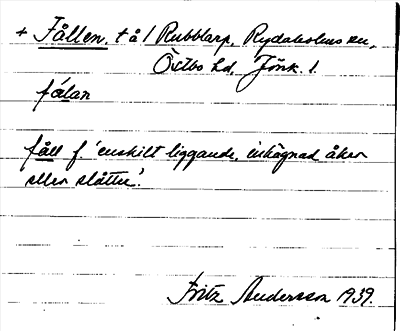 + Fållen. t å / Rubbarp. Rydaholms sn,
Östbo hd, Jönk. l.
fålan
fåll f. 'enskilt liggande, inhägnad åker
eller slåtter'.
Fritz Andersson 1939.